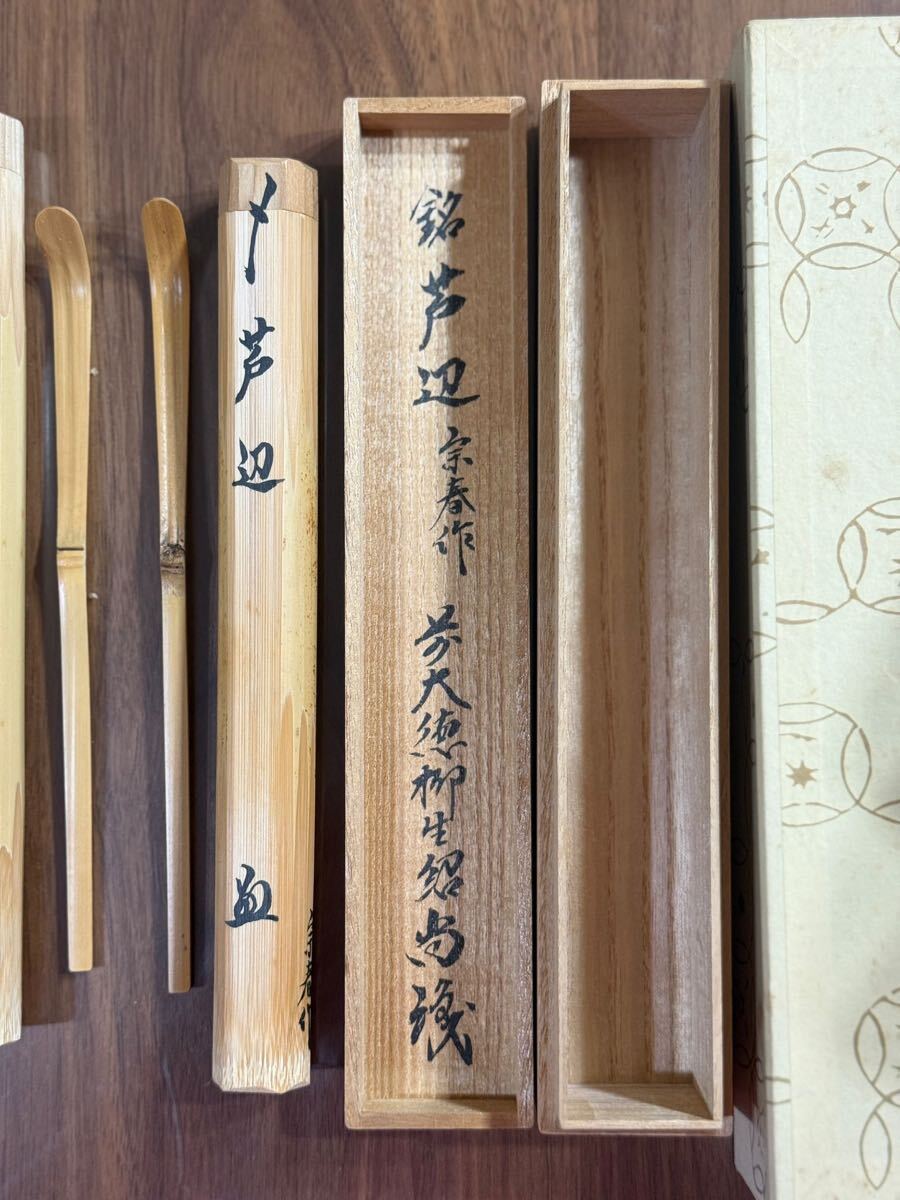 銘 芦辺 宗春作 前大徳柳生紹尚識
〆 芦辺
宗春作